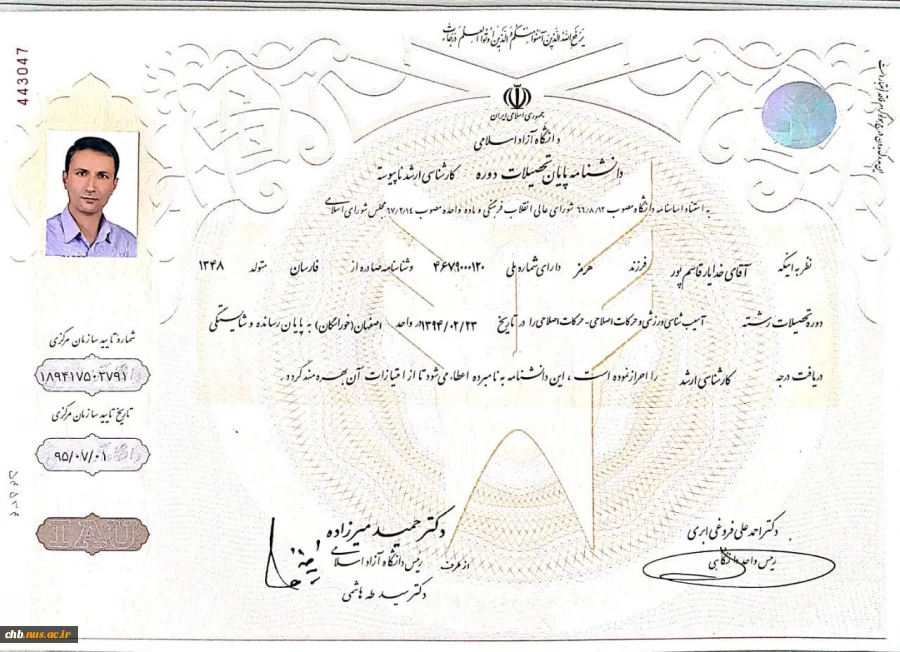 یرفع الله الذین آمنوا منکم والذین اوتوا العلم درجات
443047
جمهوری اسلامی ایران
دانشگاه آزاد اسلامی
دانشنامه پایان تحصیلات دوره کارشناسی ارشد ناپیوسته
به استناد اساسنامه دانشگاه مصوب ۶۶/۸/۱۲ شورای عالی انقلاب فرهنگی و ماده واحده مصوب ۶۷/۲/۱۴ مجلس شورای اسلامی
نظر به اینکه آقای خدایار قاسم پور فرزند هرمز دارای شماره ملی ۴۶۷۹۰۰۰۱۲۰ و شناسنامه صادره از فارسان متولد ۱۳۴۸
دوره تحصیلات رشته آسیب شناسی ورزشی و حرکات اصلاحی-حرکات اصلاحی را در تاریخ ۱۳۹۴/۰۲/۲۳ در واحد اصفهان(خوراسگان) به پایان رسانده و شایستگی
دریافت درجه کارشناسی ارشد را احراز نموده است ، این دانشنامه به نامبرده اعطا می‌شود تا از امتیازات آن بهره مند گردد.
شماره تایید سازمان مرکزی
۱۸۹۴۱۷۵۰۲۷۹۱
تاریخ تایید سازمان مرکزی
۹۵/۰۷/۰۱
IAU
دکتر احمد علی فروغی ابری
رئیس واحد دانشگاهی
دکتر حمید میرزاده
رئیس دانشگاه آزاد اسلامی
از طرف
دکتر سید طه هاشمی
chb.nus.ac.ir